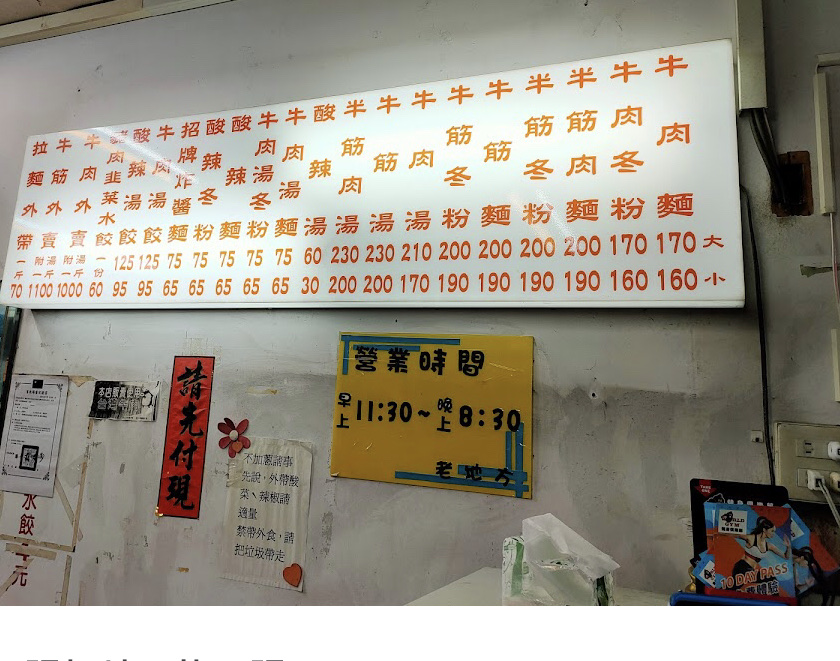 大 小
牛肉麵 170 160
牛肉冬粉 170 160
半筋肉麵 200 190
半筋冬粉 200 190
牛筋麵 200 190
牛筋冬粉 200 190
牛肉湯 210 170
牛筋湯 230 200
半筋肉湯 230 200
酸辣湯 60 30
牛肉湯麵 75 65
牛肉湯冬粉 75 65
酸辣麵 75 65
酸辣冬粉 75 65
招牌炸醬麵 75 65
牛肉湯餃 125 95
酸辣湯餃 125 95
豬肉韭菜水餃 一份 60
牛肉外賣 附湯一斤 1000
牛筋外賣 附湯一斤 1100
拉麵外帶 一斤 70
營業時間
早上11:30~晚上8:30
老地方
請先付現
本店販賣使用
不加蔥請事
先說,外帶酸
菜、辣椒請
適量
禁帶外食,請
把垃圾帶走
水餃
元
10 DAY PASS